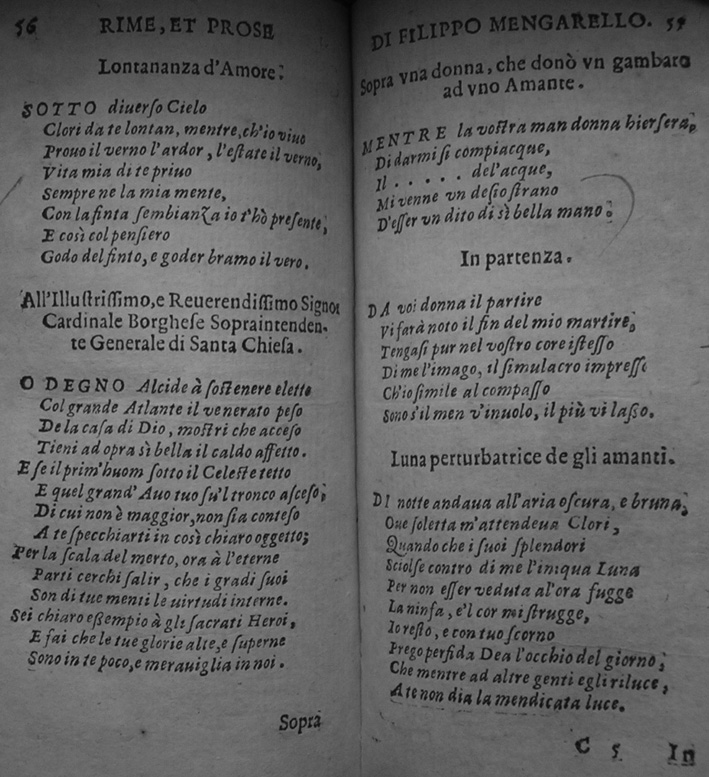 56 RIME, ET PROSE
Lontananza d'Amore.
SOTTO diuerſo Cielo
Clori da te lontan, mentre, ch'io viuo
Prouo il verno l'ardor, l'eſtate il verno,
Vita mia di te priuo
Sempre ne la mia mente,
Con la finta ſembianza io t'hò preſente,
E così col penſiero
Godo del finto, e goder bramo il vero.
All'Illuſtriſſimo, e Reuerendiſſimo Signor
Cardinale Borgheſe Sopraintenden-
te Generale di Santa Chieſa.
O DEGNO Alcide à ſoſtenere eletto
Col grande Atlante il venerato peſo
De la caſa di Dio, moſtri che acceſo
Tieni ad opra sì bella il caldo affetto.
E ſe il prim'huom ſotto il Celeſte tetto
E quel grand' Auo tuo ſu'l tronco aſceſo,
Di cui non è maggior, non ſia conteſo
A te ſpecchiarti in così chiaro oggetto;
Per la ſcala del merto, ora à l'eterne
Parti cerchi ſalir, che i gradi ſuoi
Son di tue menti le uirtudi interne.
Sei chiaro eßempio à gli ſacrati Heroi,
E fai che le tue glorie alte, e ſuperne
Sono in te poco, e merauiglia in noi.
Sopra
DI FILIPPO MENGARELLO. 57
Sopra vna donna, che donò vn gambaro
ad vno Amante.
MENTRE la voſtra man donna hierſera,
Di darmi ſi compiacque,
Il . . . . . del'acque,
Mi venne vn deſio ſtrano
D'eſſer vn dito di sì bella mano.
In partenza.
DA voi donna il partire
Vi farà noto il fin del mio martire,
Tengaſi pur nel voſtro core iſteſſo
Di me l'imago, il ſimulacro impreſſo
Ch'io ſimile al compaſſo
Sono s'il men v'inuolo, il più vi laßo.
Luna perturbatrice de gli amanti.
DI notte andaua all'aria oſcura, e bruna,
Oue ſoletta m'attendeua Clori,
Quando che i ſuoi ſplendori
Sciolſe contro di me l'iniqua Luna
Per non eſſer veduta al'ora fugge
La ninfa, e'l cor mi ſtrugge,
Io reſto, e con tuo ſcorno
Prego perfida Dea l'occhio del giorno,
Che mentre ad altre genti egli riluce,
A te non dia la mendicata luce.
C 5 In